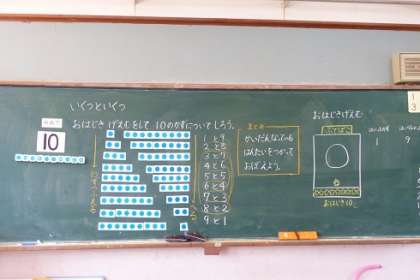 いくつといくつ
おはじき げえむをして、10のかずについてしろう。
10
1と9
2と8
3と7
4と6
5と5
6と4
7と3
8と2
9と1
まとめ
かいだんなっている
はんたいをつかって
おぼえよう。
おはじきげえむ
おはじき10こ
1
9
1
3